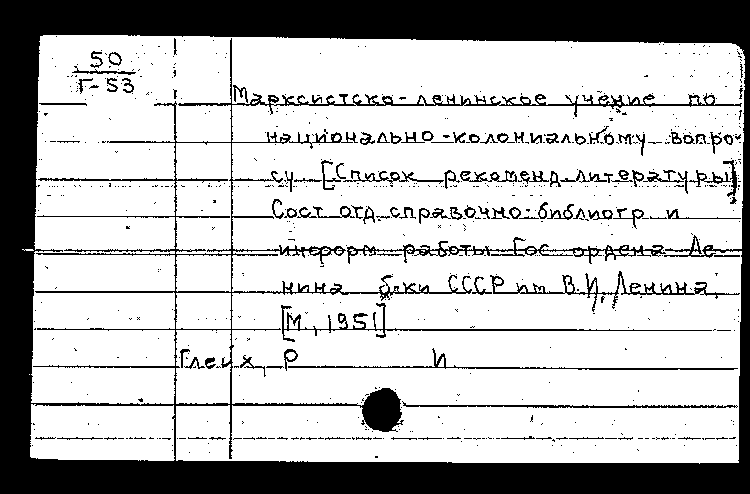 50
Г-53
Марксистско-ленинское учение по
национально-колониальному вопро-
су [Список рекоменд. литературы]
Сост. отд. справочно-библиогр. и
информ. работы Гос. ордена Ле-
нина б-ки СССР им. В.И. Ленина.
[М., 1951]
Глейх, Р И.